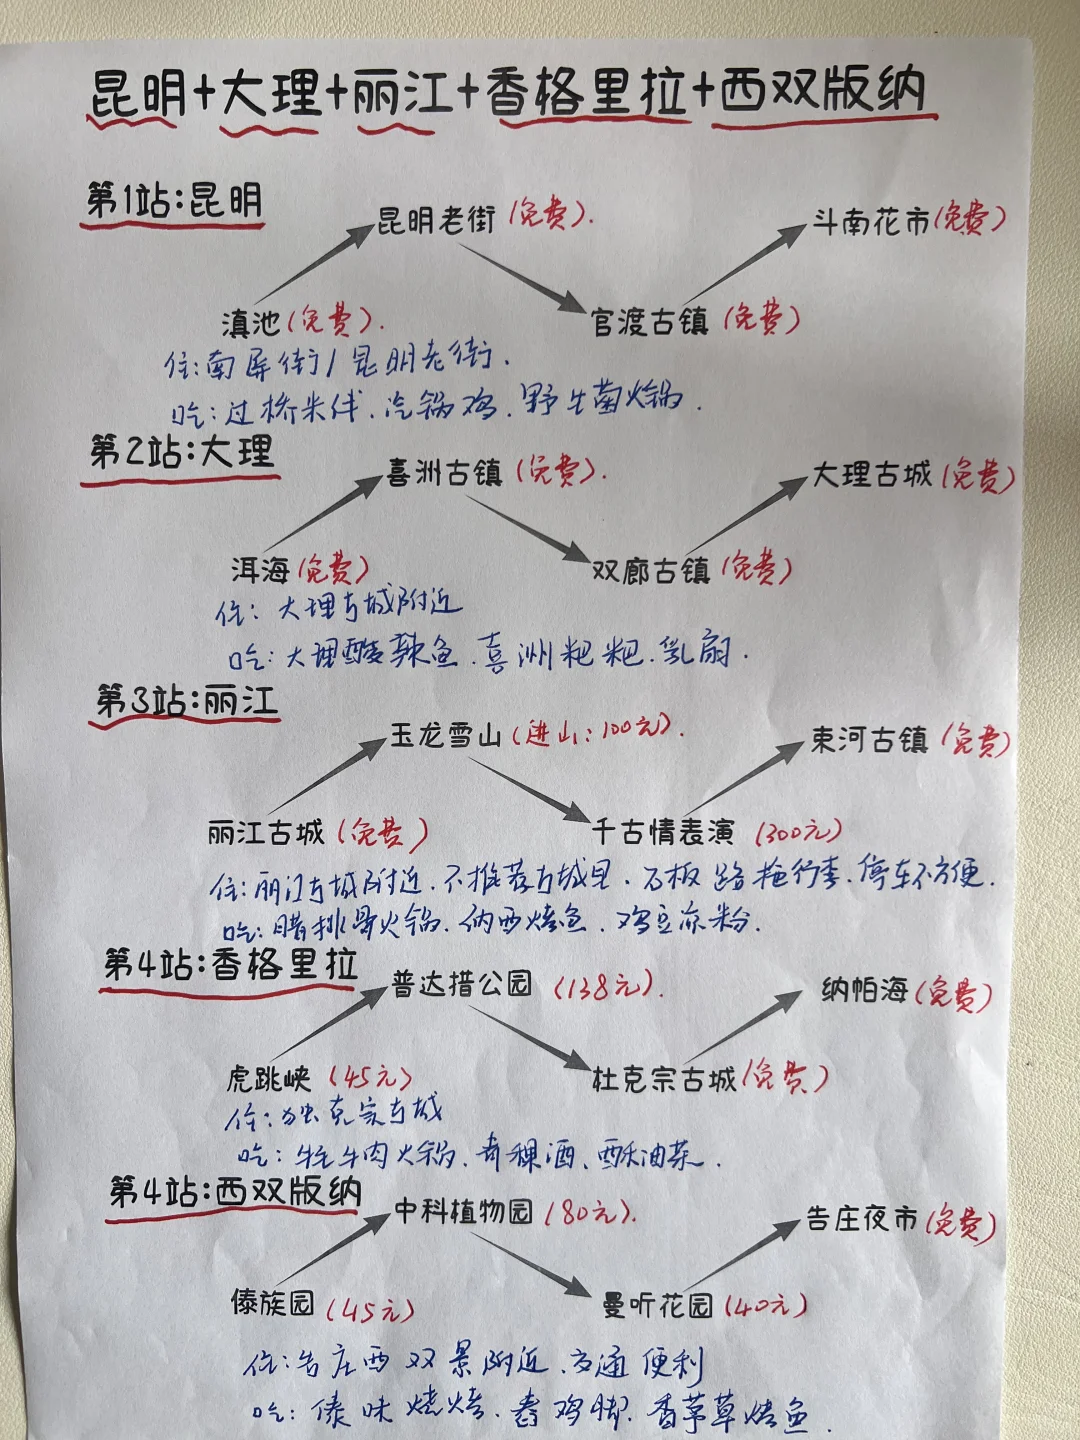 昆明+大理+丽江+香格里拉+西双版纳
第1站:昆明
昆明老街(免费).
斗南花市(免费)
滇池(免费).
官渡古镇(免费)
住:南屏街/昆明老街.
吃:过桥米线.汽锅鸡.野生菌火锅.
第2站:大理
喜洲古镇(免费).
大理古城(免费)
洱海(免费)
双廊古镇(免费)
住:大理古城附近
吃:大理酸辣鱼.喜洲粑粑.乳扇.
第3站:丽江
玉龙雪山(进山:100元).
束河古镇(免费)
丽江古城(免费)
千古情表演(300元)
住:丽江古城附近.不推荐古城里.石板路拖行李.停车不方便.
吃:腊排骨火锅.纳西烤鱼.鸡豆凉粉.
第4站:香格里拉
普达措公园(138元).
纳帕海(免费)
虎跳峡(45元)
杜克宗古城(免费)
住:独克宗古城
吃:牦牛肉火锅.青稞酒.酥油茶.
第4站:西双版纳
中科植物园(80元).
告庄夜市(免费)
傣族园(45元)
曼听花园(40元)
住:告庄西双景附近.交通便利
吃:傣味烧烤.舂鸡脚.香茅草烤鱼.